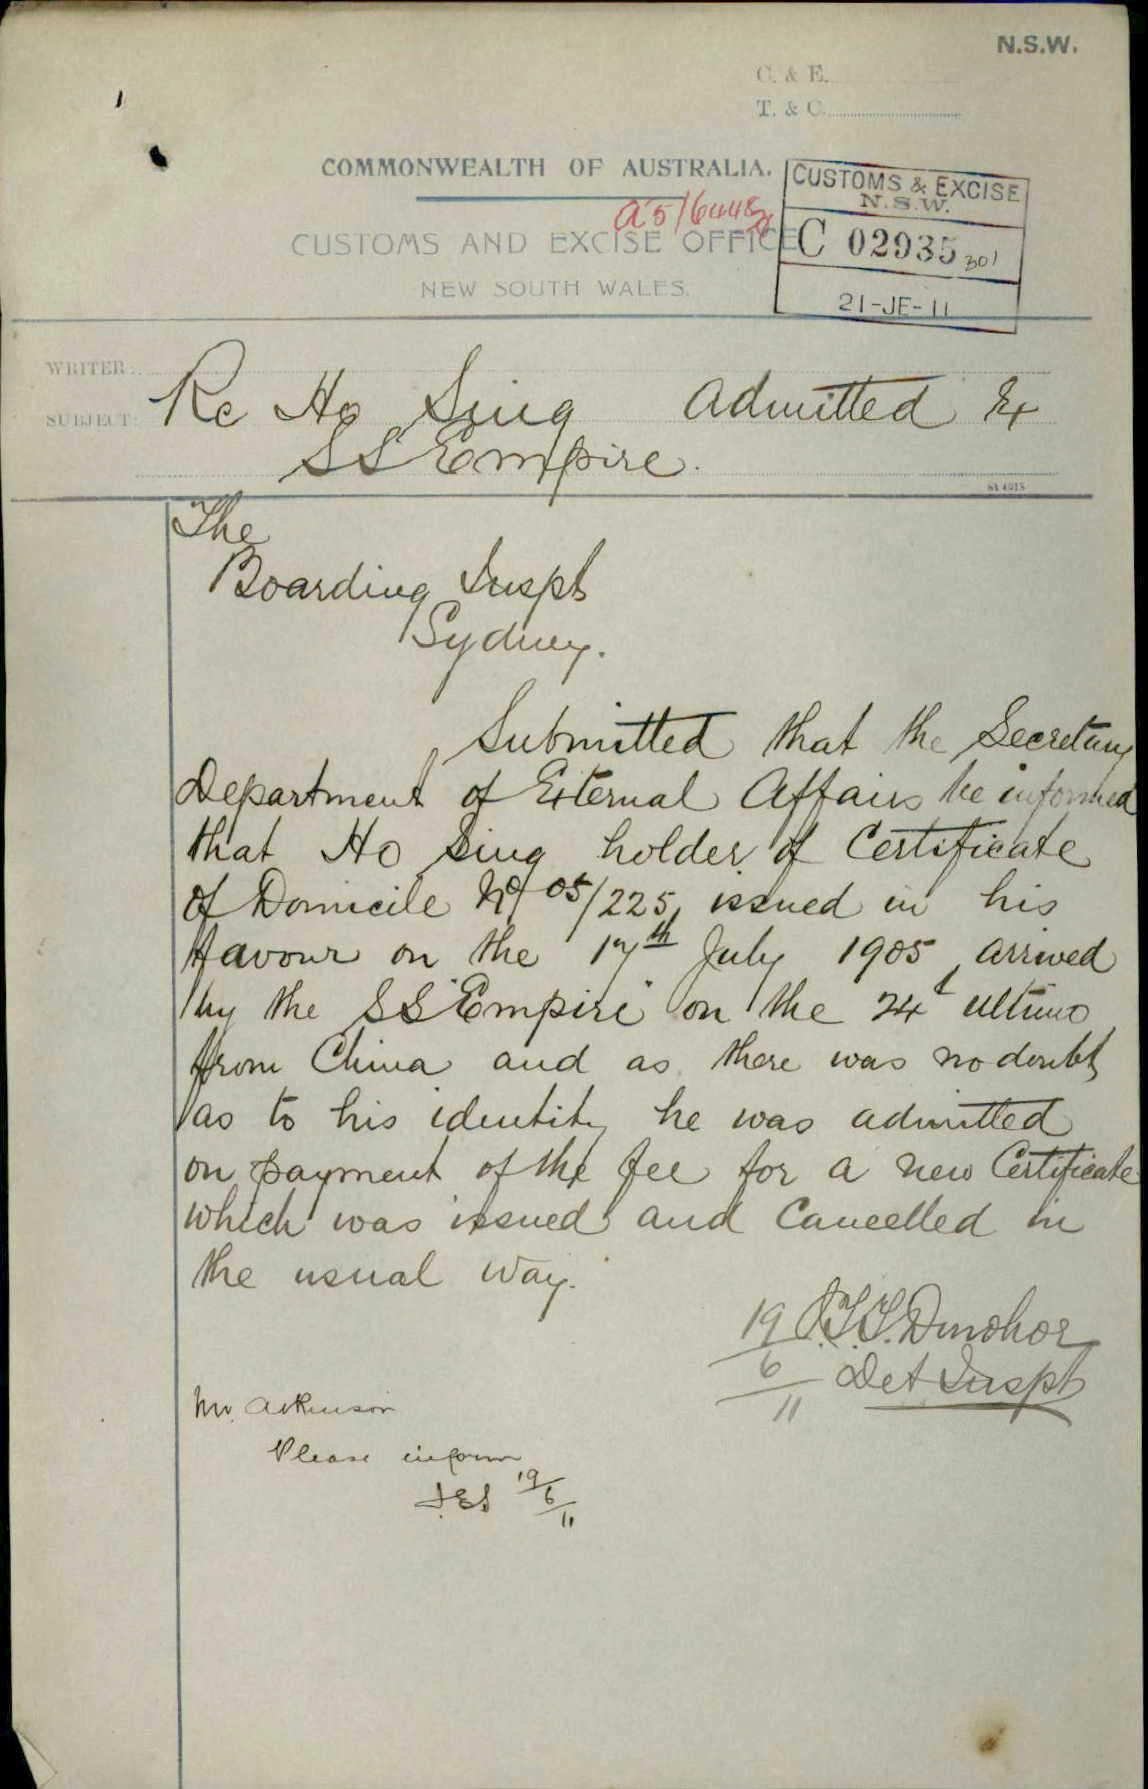 N.S.W.
C. & E.
T. & C.
COMMONWEALTH OF AUSTRALIA.
CUSTOMS & EXCISE
N.S.W.
CUSTOMS AND EXCISE OFFICE
C 02935 301
NEW SOUTH WALES.
21-JE-11
WRITER:
SUBJECT: Re Ho Sing Admitted Ex
SS Empire.
The
Boarding Inspt
Sydney.
Submitted that the Secretary
Department of External Affairs be informed
that Ho Sing holder of Certificate
of Domicile No 05/225, issued in his
favour on the 17th July 1905, arrived
by the SS "Empire" on the 24t ultimo
from China and as there was no doubt
as to his identity he was admitted
on payment of the fee for a new Certificate
which was issued and Cancelled in
the usual way.
19/6/11 J.T.T. Donohoe
Det Inspt
Mr. Atkinson
Please inform
19/6/11